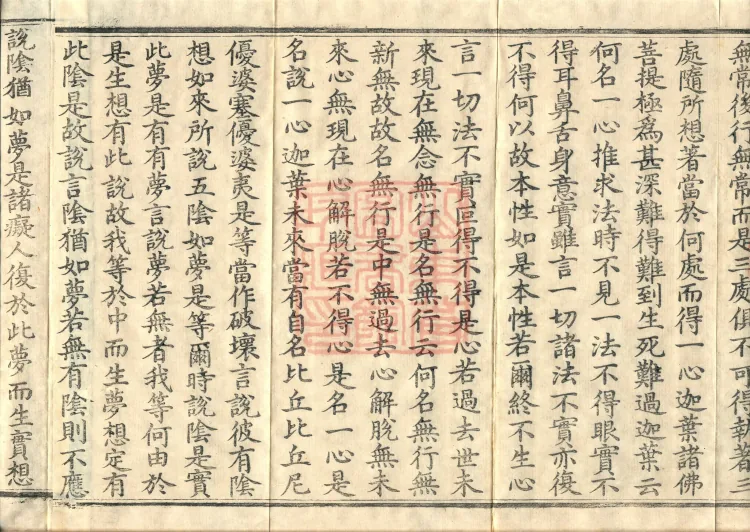 無常後行無常而是三處俱不可得執著三
處隨所想著當於何處而得一心迦葉諸佛
菩提極爲甚深難得難到生死難過迦葉云
何名一心推求法時不見一法不得眼實不
得耳鼻舌身意實雖言一切諸法不實亦復
不得何以故本性如是本性若爾終不生心
言一切法不實叵得不得是心若過去世未
來現在無念無行是名無行云何名無行無
新無故故名無行是中無過去心解脫無未
來心無現在心解脫若不得心是名一心是
名說一心迦葉未來當有自名比丘比丘尼
優婆塞優婆夷是等當作破壞言說彼有陰
想如來所說五陰如夢是等爾時說陰是實
此夢是有有夢言說夢若無者我等何由於
是生想有此說故我等於中而生夢想定有
此陰是故說言陰猶如夢若無有陰則不應
說陰猶如夢是諸癡人復於此夢而生實想